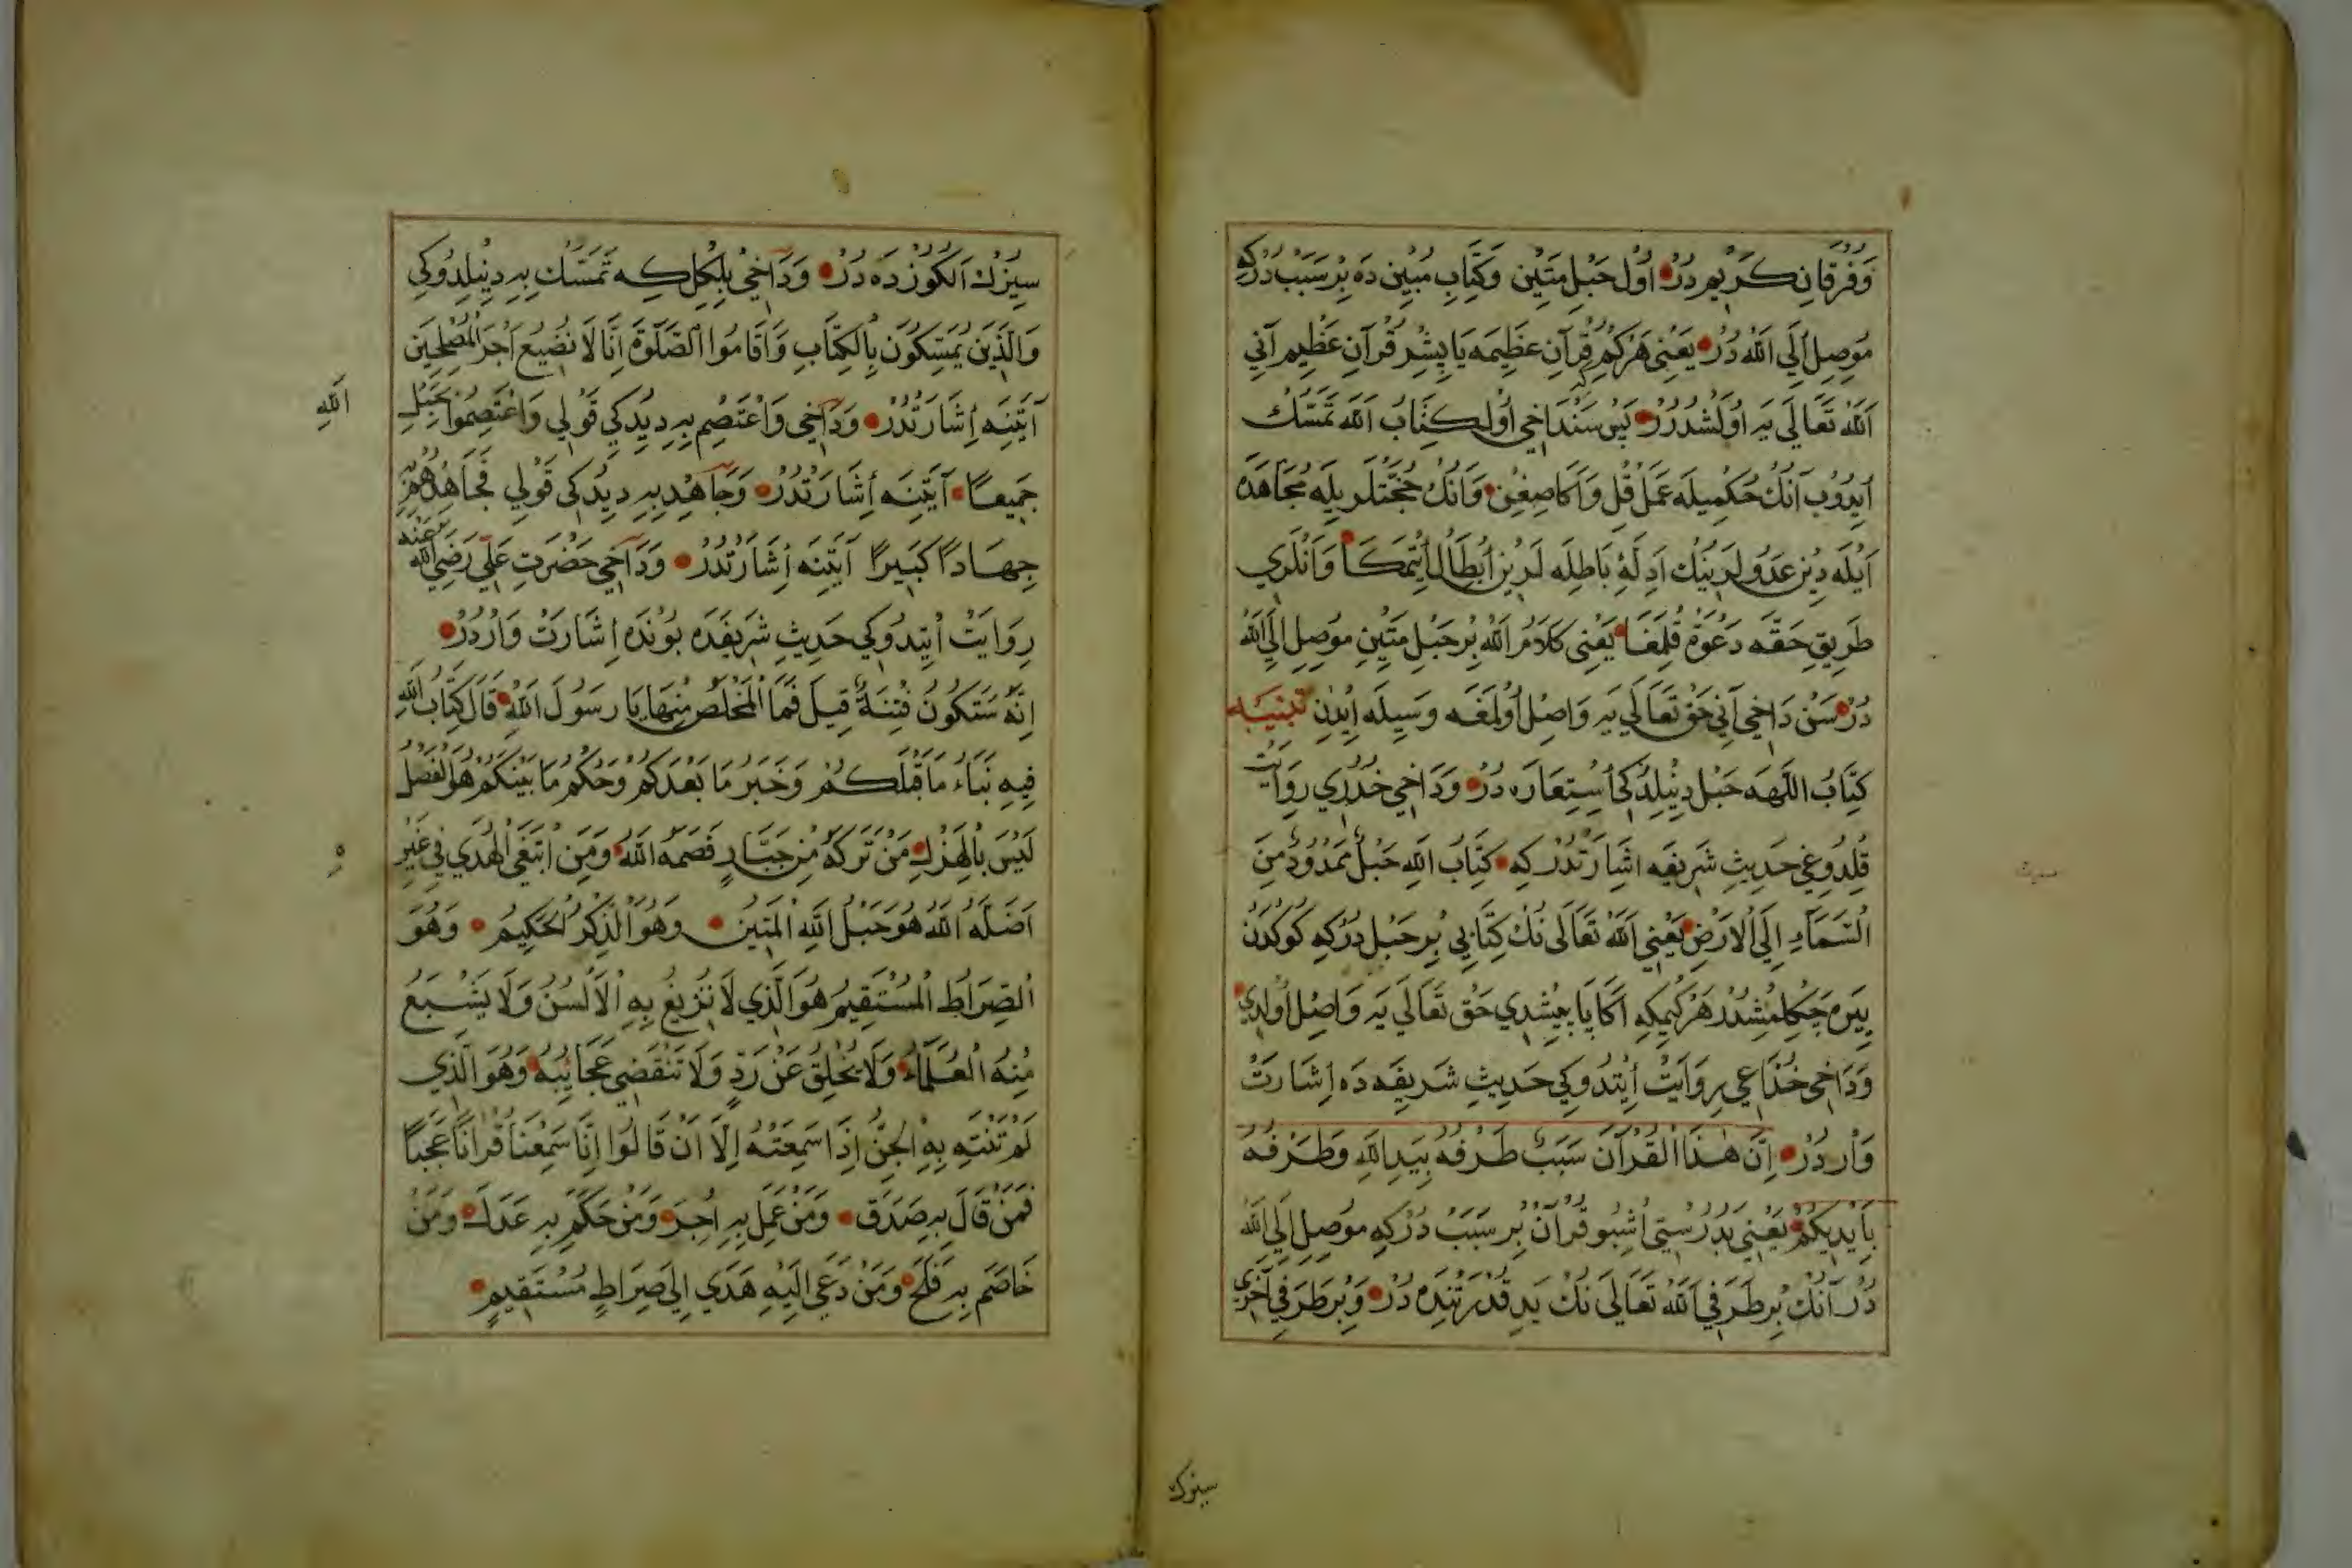 وَفُرْقَانِ كَرِيم دُرْ اُول حَبْلِ مَتِين وَكِتَابِ مُبِين دَه بِرْ سَبَبْ دُرْكِه
مُوصِلْ اِلَي اللّٰه دُرْ يَعْنِى هَرْكِمْ قُرآنِ عَظِيمَه يَاپِشِرْ قُرآنِ عَظِيم آنِي
اَللّٰه تَعَالَى يَه اُولَشْدُرُرْ پَسْ سَنْ دَاخِي اُول كِتَابُ اللّٰه تَمَسُّكْ
اَيدُوبْ آنُكْ حُكْمِيلَه عَمَلْ قِلْ وَاَكَا صِغِنْ وَآنُكْ حُجَّتْلَرِيلَه مُجَاهَدَه
اَيْلَه دِين عَدُولَرِينِكْ اَدِلَّهٔ بَاطِلَه لَرِينْ اِبْطَال اِيْتمَكَا وَآنْلَرِي
طَرِيقِ حَقَّه دَعْوَة قِلْمَغَا يَعْنِى كَلَامُ اللّٰه بِرْ حَبْلِ مَتِينِ مُوصِلْ اِلَي اللّٰه
دُرْ سَنْ دَاخِي آنِي حَقْ تَعَالَي يَه وَاصِلْ اُولْمَغَه وَسِيلَه اِيْدِنْ تَنْبِيه
كِتَابُ اللّٰهَه حَبْل دِينِلْدُكِى اِسْتِعَارَه دُرْ وَدَاخِي خُدْرِي رِوَايَتْ
قِلْدُوغِي حَدِيثِ شَرِيفَه اِشَارَتْدُرْ كِه كِتَابُ اللّٰهِ حَبْلٌ مَمْدُودٌ مِنَ
السَّمَآءِ اِلَي الْاَرْضِ يَعْنِي اَللّٰه تَعَالَى نُكْ كِتَابِي بِرْ حَبْل دُرْكِه كُوكْدَنْ
يِيرَه چَكِلْمِشْدُرْ هَرْكِيمْكِه اَكَا يَاپِيشْدِي حَقْ تَعَالَى يَه وَاصِلْ اُولْدِي
وَدَاخِي خُذَاعِي رِوَايَتْ اِيْتْدُوكِي حَدِيثِ شَرِيفَه دَه اِشَارَتْ
وَارْدُرْ اِنَّ هٰذَا الْقُرْآنَ سَبَبٌ طَرْفُهُ بِيَدِ اللّٰهِ وَطَرْفُهُ
بِاَيْدِيكُمْ يَعْنِي بَدُرُسْتِي اُشْبُو قُرآنْ بِرْ سَبَبْ دُرْكِه مُوصِلْ اِلَي اللّٰه
دُرْ آنُكْ بِرْ طَرَفِي اَللّٰه تَعَالَى نُكْ يَدِ قُدْرَتِنْدَه دُرْ وَبِرْ طَرَفِي آخَرِي
سيزك
سِيزُكْ اَلكُوزْدَه دُرْ وَدَاخِي بِلْكِلْ كِه تَمَسَّكْ بِهِ دِينِلْدُوكِي
وَالَّذِينَ يُمَسِّكُونَ بِالْكِتَابِ وَاَقَامُوا الصَّلٰوةَ اِنَّا لَا نُضِيعُ اَجْرَ الْمُصْلِحِينَ
آيَتِنَه اِشَارَتْدُرْ وَدَاخِي وَاعْتَصِمْ بِهِ دِيدُكِي قَوْلِي وَاعْتَصِمُوا بِحَبْلِ
اللّٰهِ
جَمِيعًا آيَتِنَه اِشَارَتْدُرْ وَجَاهِدْ بِهِ دِيدُكِى قَوْلِي فَجَاهِدْهُمْ بِهِ
جِهَادًا كَبِيرًا آيَتِنَه اِشَارَتْدُرْ وَدَاخِي حَضْرَتِ عَلِي رَضِيَ اللّٰه عَنْه
رِوَايَتْ اِيْتِدُوكِي حَدِيثِ شَرِيفَدَه بُونْدَه اِشَارَتْ وَارْدُرْ
اِنَّهُ سَتَكُونُ فِتْنَةٌ قِيلَ فَمَا الْمَخْلَصُ مِنْهَا يَا رَسُولَ اللّٰهِ قَالَ كِتَابُ اللّٰهِ
فِيهِ نَبَاءُ مَا قَبْلَكُمْ وَخَبَرُ مَا بَعْدَكُمْ وَحُكْمُ مَا بَيْنَكُمْ هُوَ الْفَصْلُ
لَيْسَ بِالْهَزْلِ مَنْ تَرَكَهُ مِنْ جَبَّارٍ قَصَمَهُ اللّٰهُ وَمَنِ ابْتَغَى الْهُدَي فِي غَيْرِ
ه
اَضَلَّهُ اللّٰهُ هُوَ حَبْلُ اللّٰهِ الْمَتِينُ وَهُوَ الذِّكْرُ الْحَكِيمُ وَهُوَ
الصِّرَاطُ الْمُسْتَقِيمُ هُوَ الَّذِي لَا تَزِيغُ بِهِ الْاَلْسُنُ وَلَا يَشْبَعُ
مِنْهُ الْعُلَمَاءُ وَلَا يَخْلِقُ عَنْ رَدٍّ وَلَا تَنْقَضِي عَجَائِبُهُ وَهُوَ الَّذِي
لَمْ تَنْتَهِ بِهِ الْجِنُّ اِذَا سَمِعَتْهُ اِلَّا اَنْ قَالُوا اِنَّا سَمِعْنَا قُرْانًا عَجَبًا
فَمَنْ قَالَ بِهِ صَدَقَ وَمَنْ عَمِلَ بِهِ اُجِرَ وَمَنْ حَكَمَ بِهِ عَدَلَ وَمَنْ
خَاصَمَ بِهِ فَلَحَ وَمَنْ دَعَي اِلَيْهِ هَدَي اِلَي صِرَاطٍ مُسْتَقِيمٍ